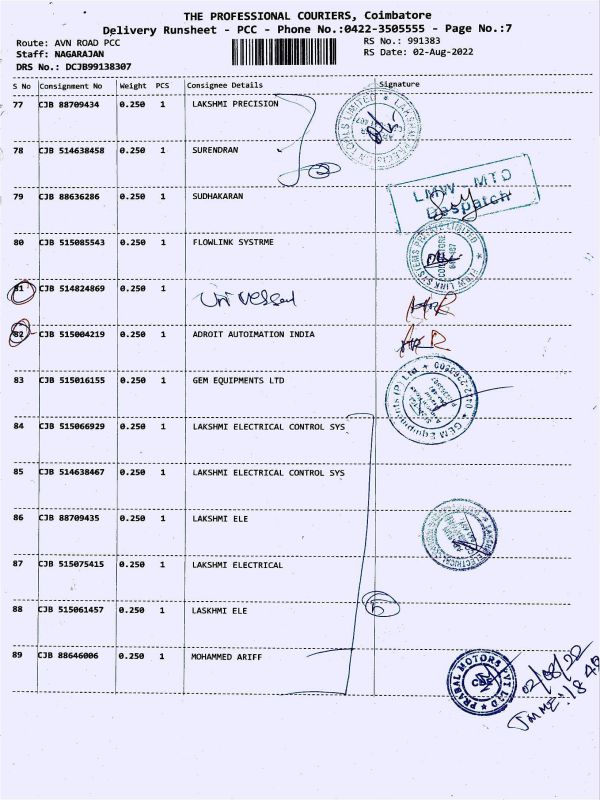 THE PROFESSIONAL COURIERS, Coimbatore
Delivery Runsheet - PCC - Phone No.:0422-3505555 - Page No.:7
Route: AVN ROAD PCC RS No.: 991383
Staff: NAGARAJAN RS Date: 02-Aug-2022
DRS No.: DCJB99138307
S No Consignment No Weight PCS Consignee Details Signature
77 CJB 88709434 0.250 1 LAKSHMI PRECISION
78 CJB 514638458 0.250 1 SURENDRAN
79 CJB 88636286 0.250 1 SUDHAKARAN
LMW - MTD
Despatch
80 CJB 515085543 0.250 1 FLOWLINK SYSTRME
FLOW LINK SYSTEMS PRIVATE LIMITED
81 CJB 514824869 0.250 1 Universal
82 CJB 515004219 0.250 1 ADROIT AUTOIMATION INDIA
83 CJB 515016155 0.250 1 GEM EQUIPMENTS LTD
GEM Equipments (P) Ltd
84 CJB 515066929 0.250 1 LAKSHMI ELECTRICAL CONTROL SYS
85 CJB 514638467 0.250 1 LAKSHMI ELECTRICAL CONTROL SYS
86 CJB 88709435 0.250 1 LAKSHMI ELE
87 CJB 515075415 0.250 1 LAKSHMI ELECTRICAL
88 CJB 515061457 0.250 1 LASKHMI ELE
89 CJB 88646006 0.250 1 MOHAMMED ARIFF
PRABAL MOTORS PVT LTD
CBE
02/08/22